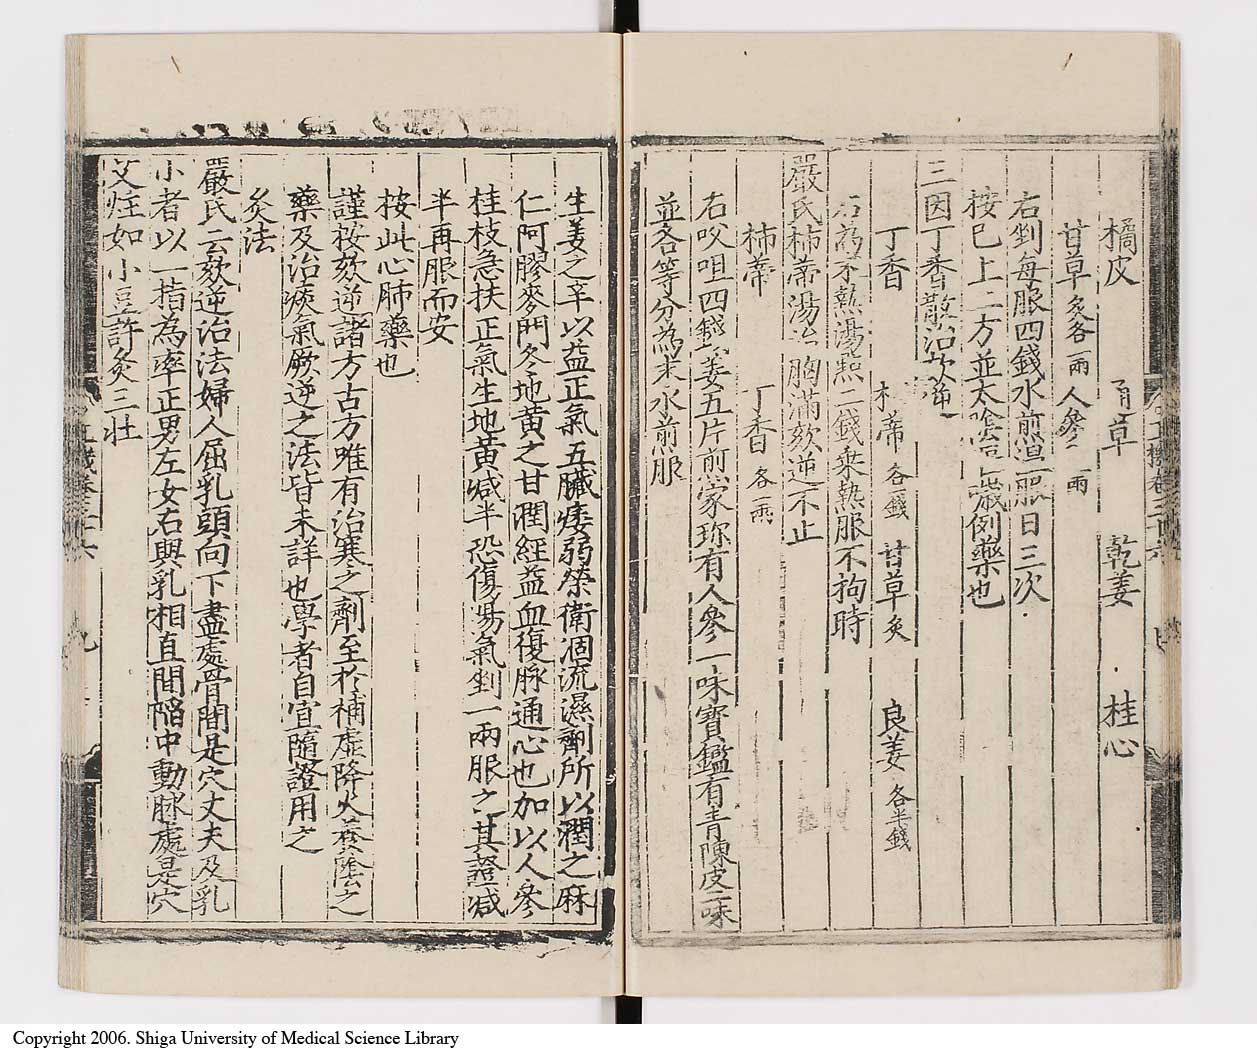 橘皮 通草 乾姜 桂心
甘草炙各二兩 人參一兩
右剉每服四錢水煎溫服日三次
按已上二方並太陰
例藥也
三因丁香散治欬逆
丁香 柿蒂各一錢 甘草炙 良姜各半錢
右為末熱湯點二錢乗熱服不拘時
嚴氏柿蒂湯治胸滿欬逆不止
柿蒂 丁香各一兩
右㕮咀四錢姜五片煎家珎有人參一味寶鑑有青陳皮二味
並各等分為末水煎服
生姜之辛以益正氣五臟痿弱榮衛涸流濕劑所以潤之麻
仁阿膠麥門冬地黄之甘潤經益血復脉通心也加以人參
桂枝急扶正氣生地黄减半恐傷陽氣剉一兩服之其證减
半再服而安
按此心肺藥也
謹按欬逆諸方古方唯有治寒之劑至於補虛降火養陰之
藥及治痰氣厥逆之法皆未詳也學者自宜隨證用之
灸法
嚴氏云欬逆治法婦人屈乳頭向下盡處骨間是穴丈夫及乳
小者以一指為率正男左女右與乳相直間陷中動脉處是穴
艾炷如小豆許灸三壯
Copyright 2006. Shiga University of Medical Science Library